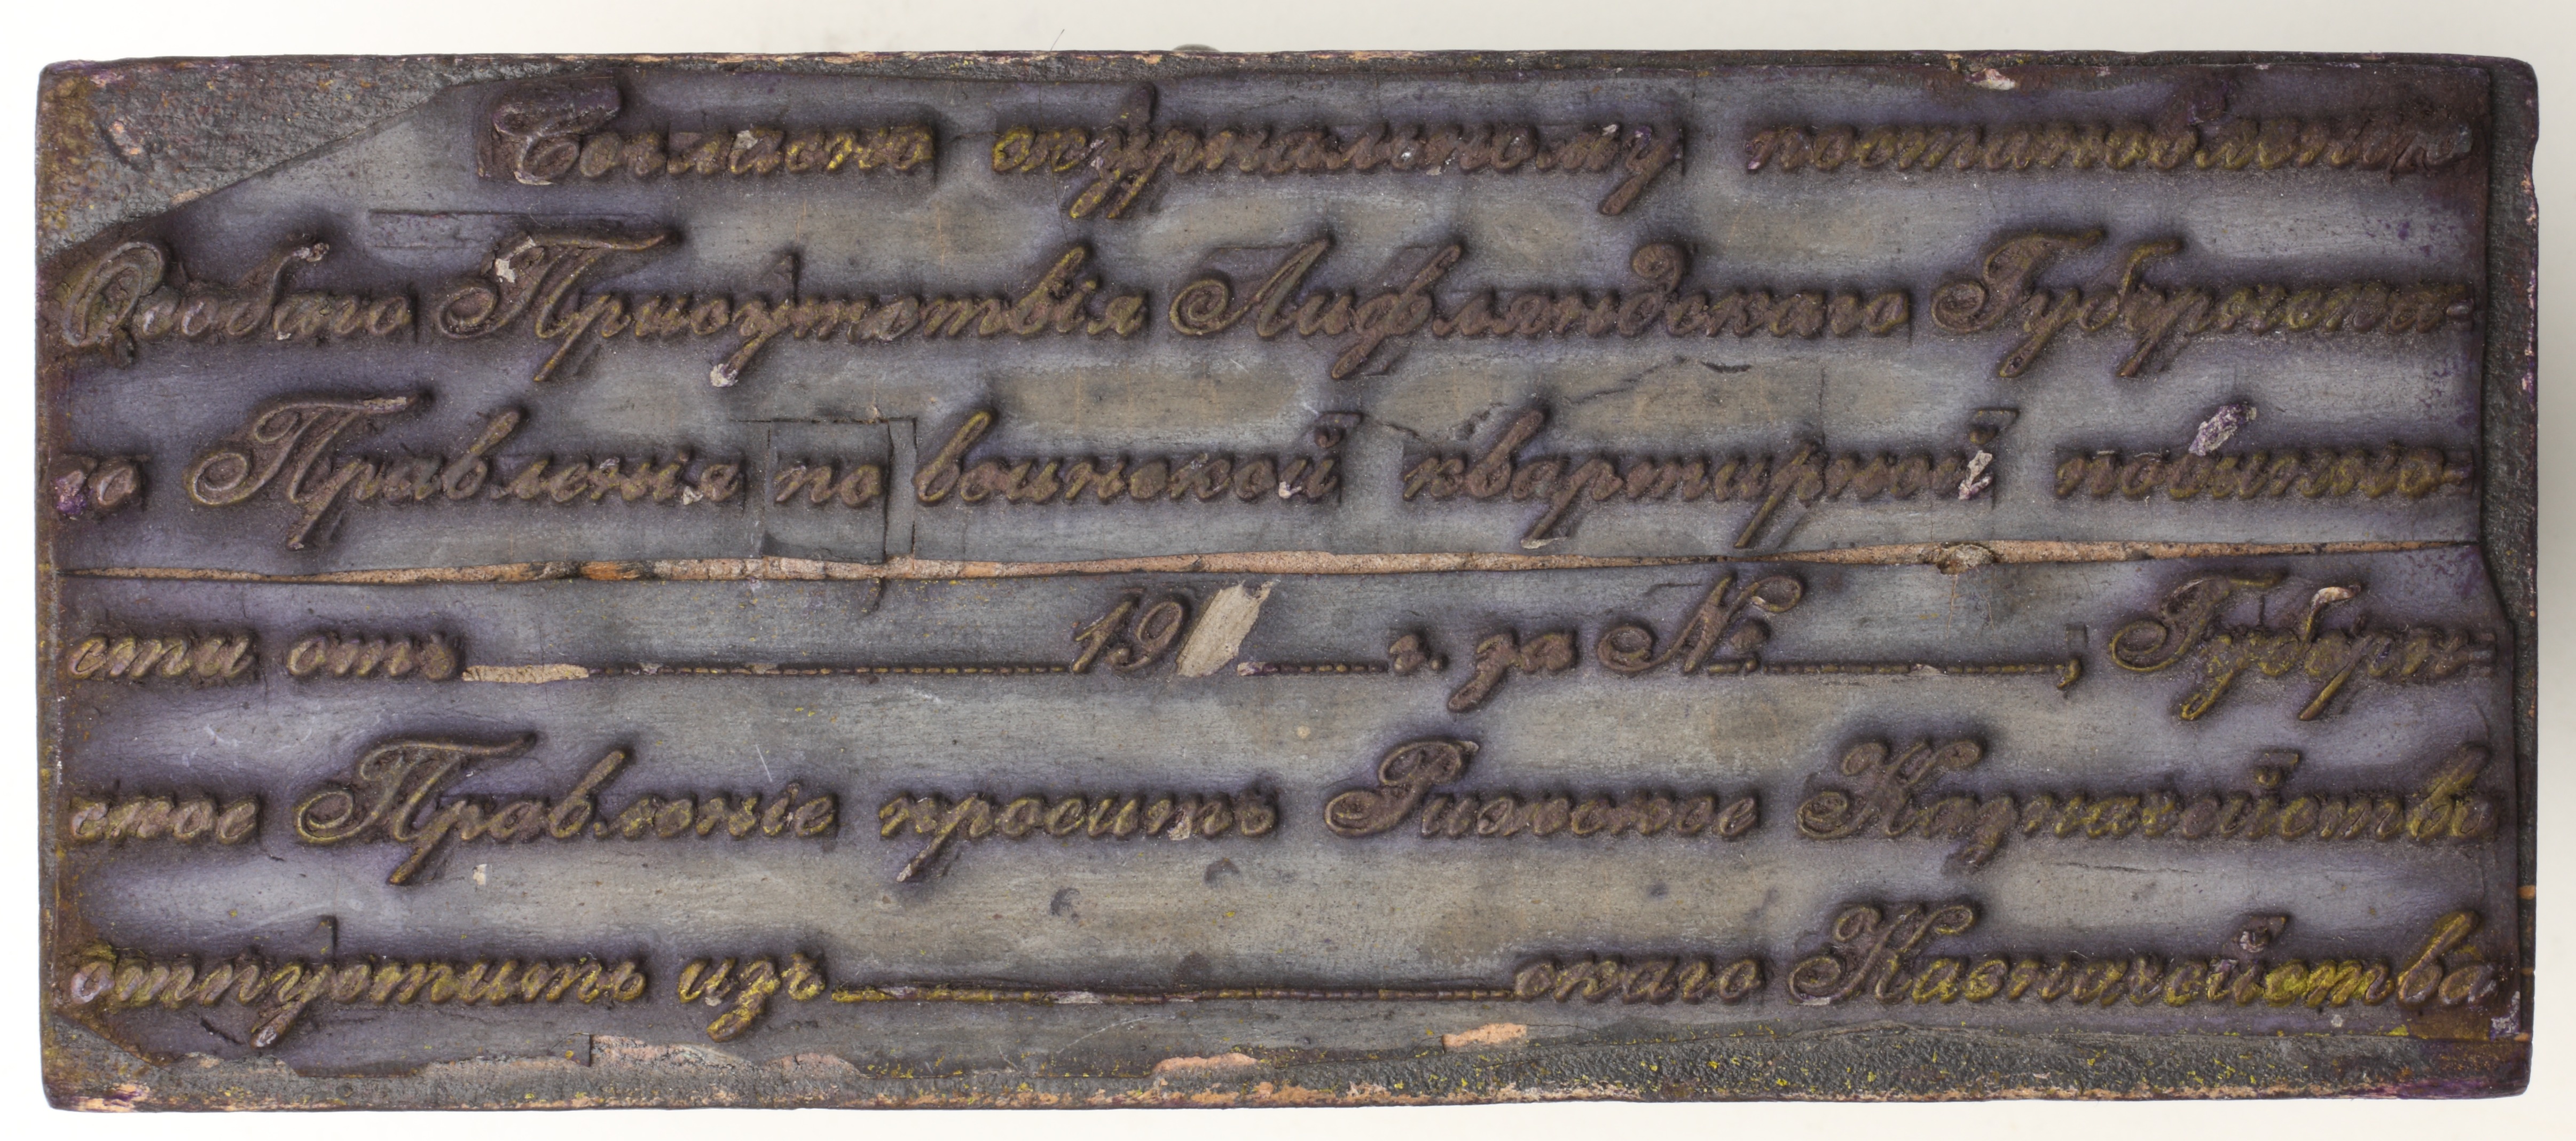 Согласно журнальному постановленію
Особаго Присутствія Лифляндскаго Губернска-
го Правленія по воинской квартирной повинно-
сти отъ 19 г. за №, Губерн-
ское Правленіе проситъ Рижское Казначейство
отпустить изъ скаго Казначейства